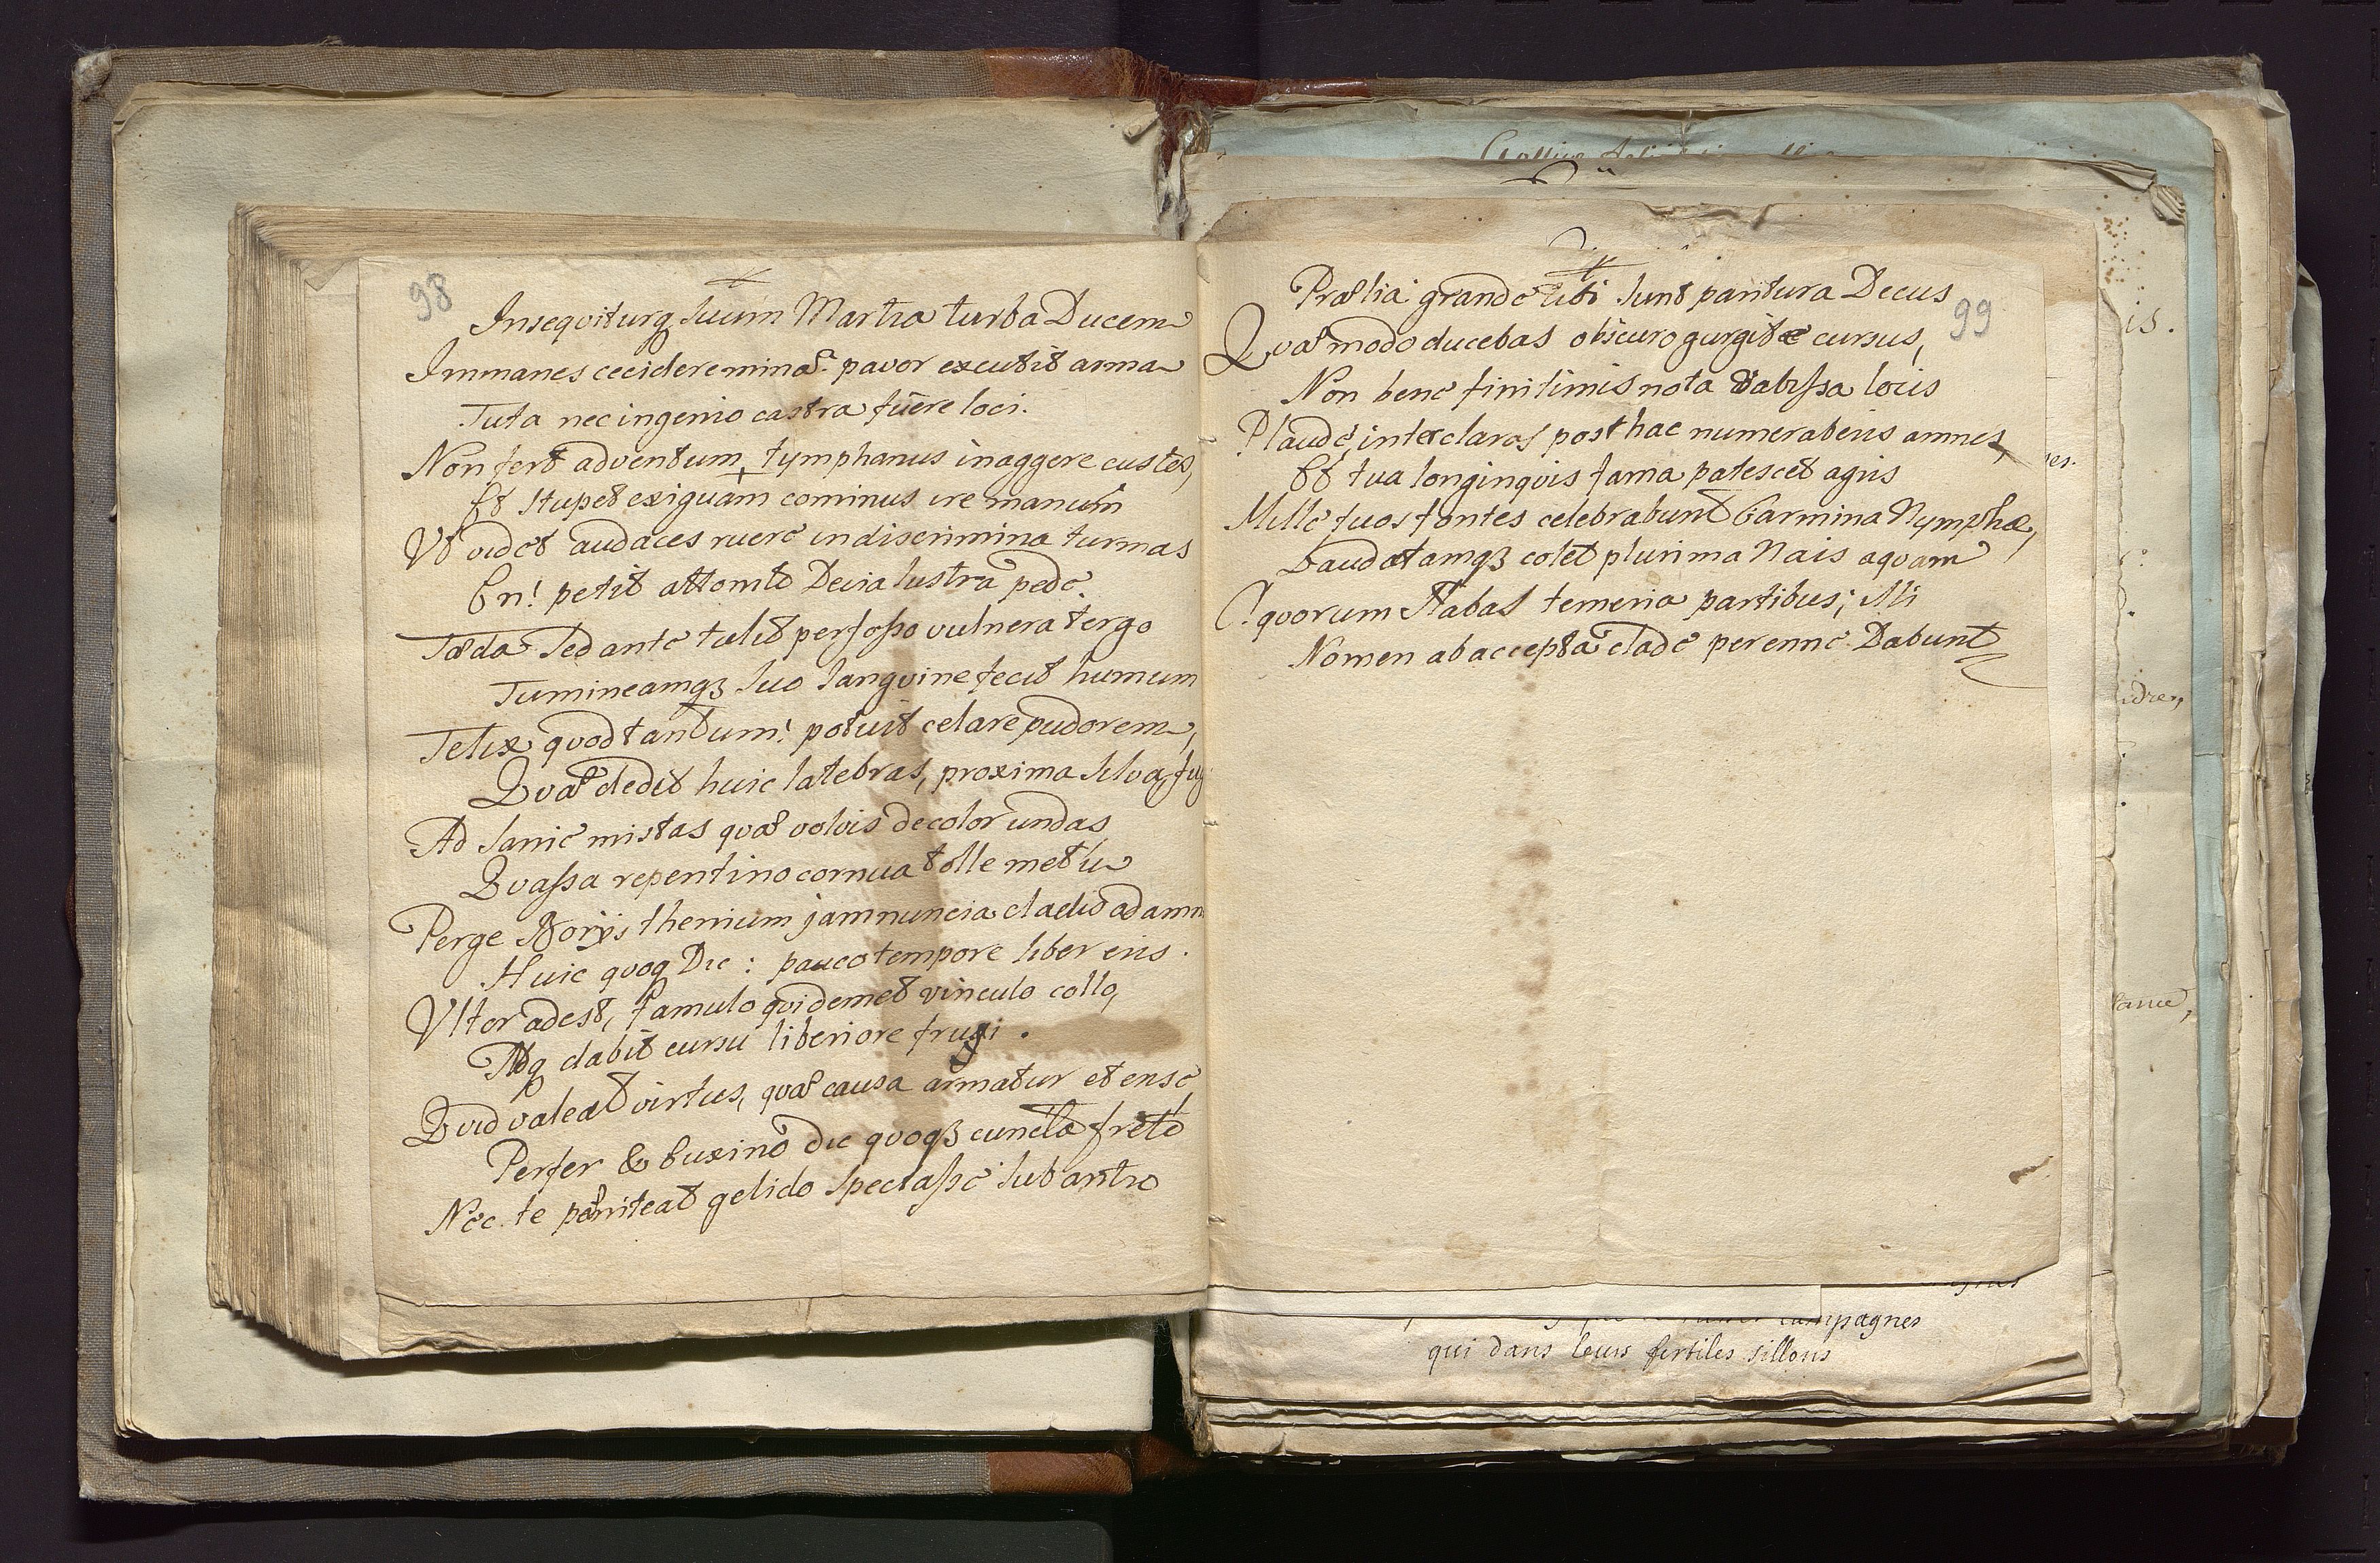 98
Insequiturq suum Martia turba Ducem
Immanes cecidere minæ: pavor excutit arma
Tuta nec ingenio castra fuere loci.
Non fert adventum, tymphanus in aggere custos,
Et stupet exiguam cominus ire manum
Ut videt audaces ruere in discrimina turmas
En! petit attonito Devia lustra pede.
Fœda sed ante tulit perfosso vulnera tergo
Fumineamqз suo sanguine fecit humum
Felix quod tantum! potuit celare pudorem,
Quæ dedit huic latebras, proxima silva
At sanie mistas quæ volvis decolor undas
Quassa repentino cornua tolle metu
Perge jam nuncia cladis ad
Huic quoq Dic: pauco tempore liber eris.
Ultor adest, famulo qui demet vincula collo,
Atq dabit cursu liberiore frui.
Quid valeat virtus, quæ causa armatur et ense
Perfer & Euxino dic quoqз cuncta freto
Nec te pœniteat gelido spectasse sub antro
Prælia grande tibi sunt paritura Decus
99
Quæ modo ducebas obscuro gurgite cursus,
Non bene finitimis nota locis
Plaude, inter claros posthac numeraberis amnes,
Et tua longinquis fama patescet agris
Mille tuos fontes celebrabunt Carmina Nymphæ,
Laudatamqз colet plurima Nais aquam
quorum stabas temeria partibus; illi
Nomen ab accepta clade perenne Dabunt
is.
campagnes
qui dans leurs fertiles sillons